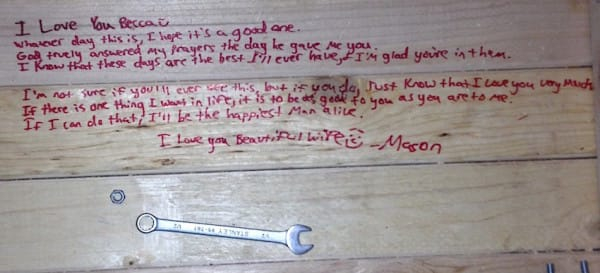 I Love You Becca
Whatever day this is, I hope it's a good one.
God truely answered my prayers the day he gave me you.
I know that these days are the best I'll ever have, & I'm glad you're in them.
I'm not sure if you'll ever see this, but if you do, Just know that I love you very much.
If there is one thing I want in life, it is to be as good to you as you are to me.
If I can do that, I'll be the happiest man alive.
I Love you Beautiful wife -Mason
1/2 STANLEY 1/2